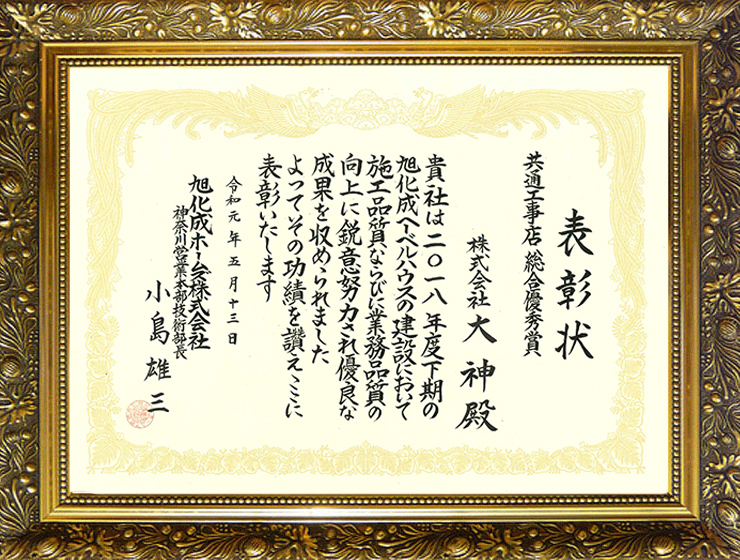 表彰状
共通工事店 総合優秀賞
株式会社 大神殿
貴社は二〇一八年度下期の
旭化成ヘーベルハウスの建設において
施工品質ならびに業務品質の
向上に鋭意努力され優良な
成果を収められました
よってその功績を讃えここに
表彰いたします
令和元年五月十三日
旭化成ホームズ株式会社
神奈川営業本部技術部長
小島雄三